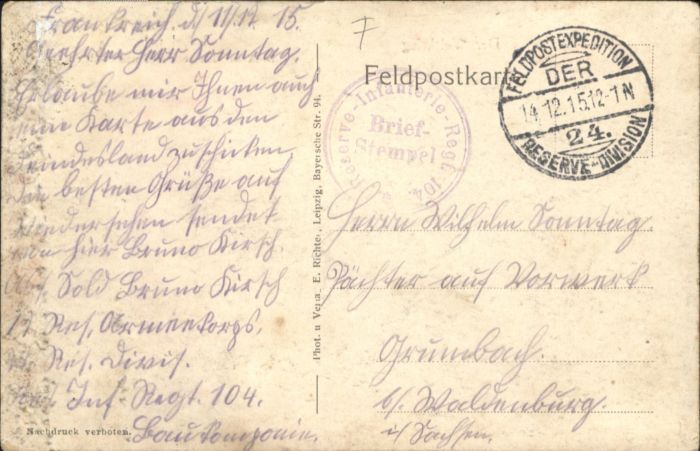 Frankreich. d. 11/12 15.
Geehrter Herr Sonntag.
Erlaube mir Ihnen auch
eine Karte aus den
Feindesland zu schicken
die besten Grüße auf
wiedersehen sendet
von hier Bruno Kirsch.
Sold Bruno Kirsch
12 Res. Armeekorps.
Res. Divis.
Inf-Regt. 104.
Baukompanie.
Nachdruck verboten.
Phot. u Verlag E. Richter, Leipzig, Bayersche Str. 94.
F
Feldpostkarte
Reserve-Infanterie-Regt. 104
Brief-
Stempel
FELDPOSTEXPEDITION
DER
14.12.15.12-1N
24.
RESERVE-DIVISION
Herrn Wilhelm Sonntag.
Pächter auf Vorwerk
Grumbach.
b/ Waldenburg.
i/ Sachsen.